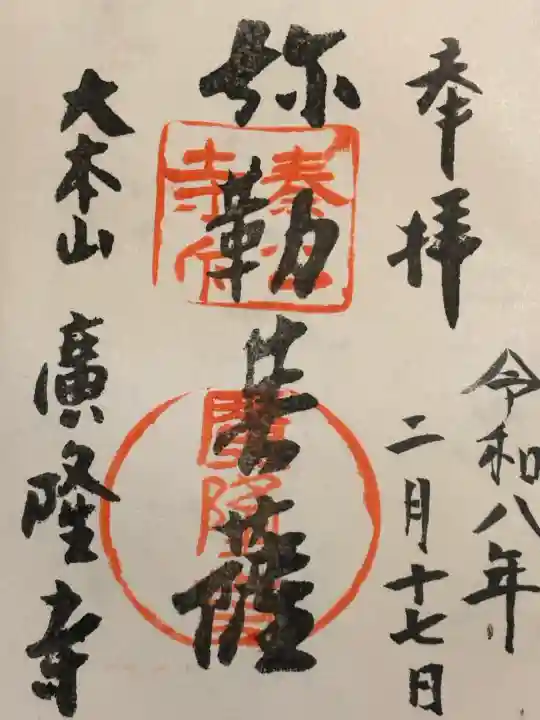 奉拝
令和八年
二月十七日
弥勒菩薩
大本山 廣隆寺